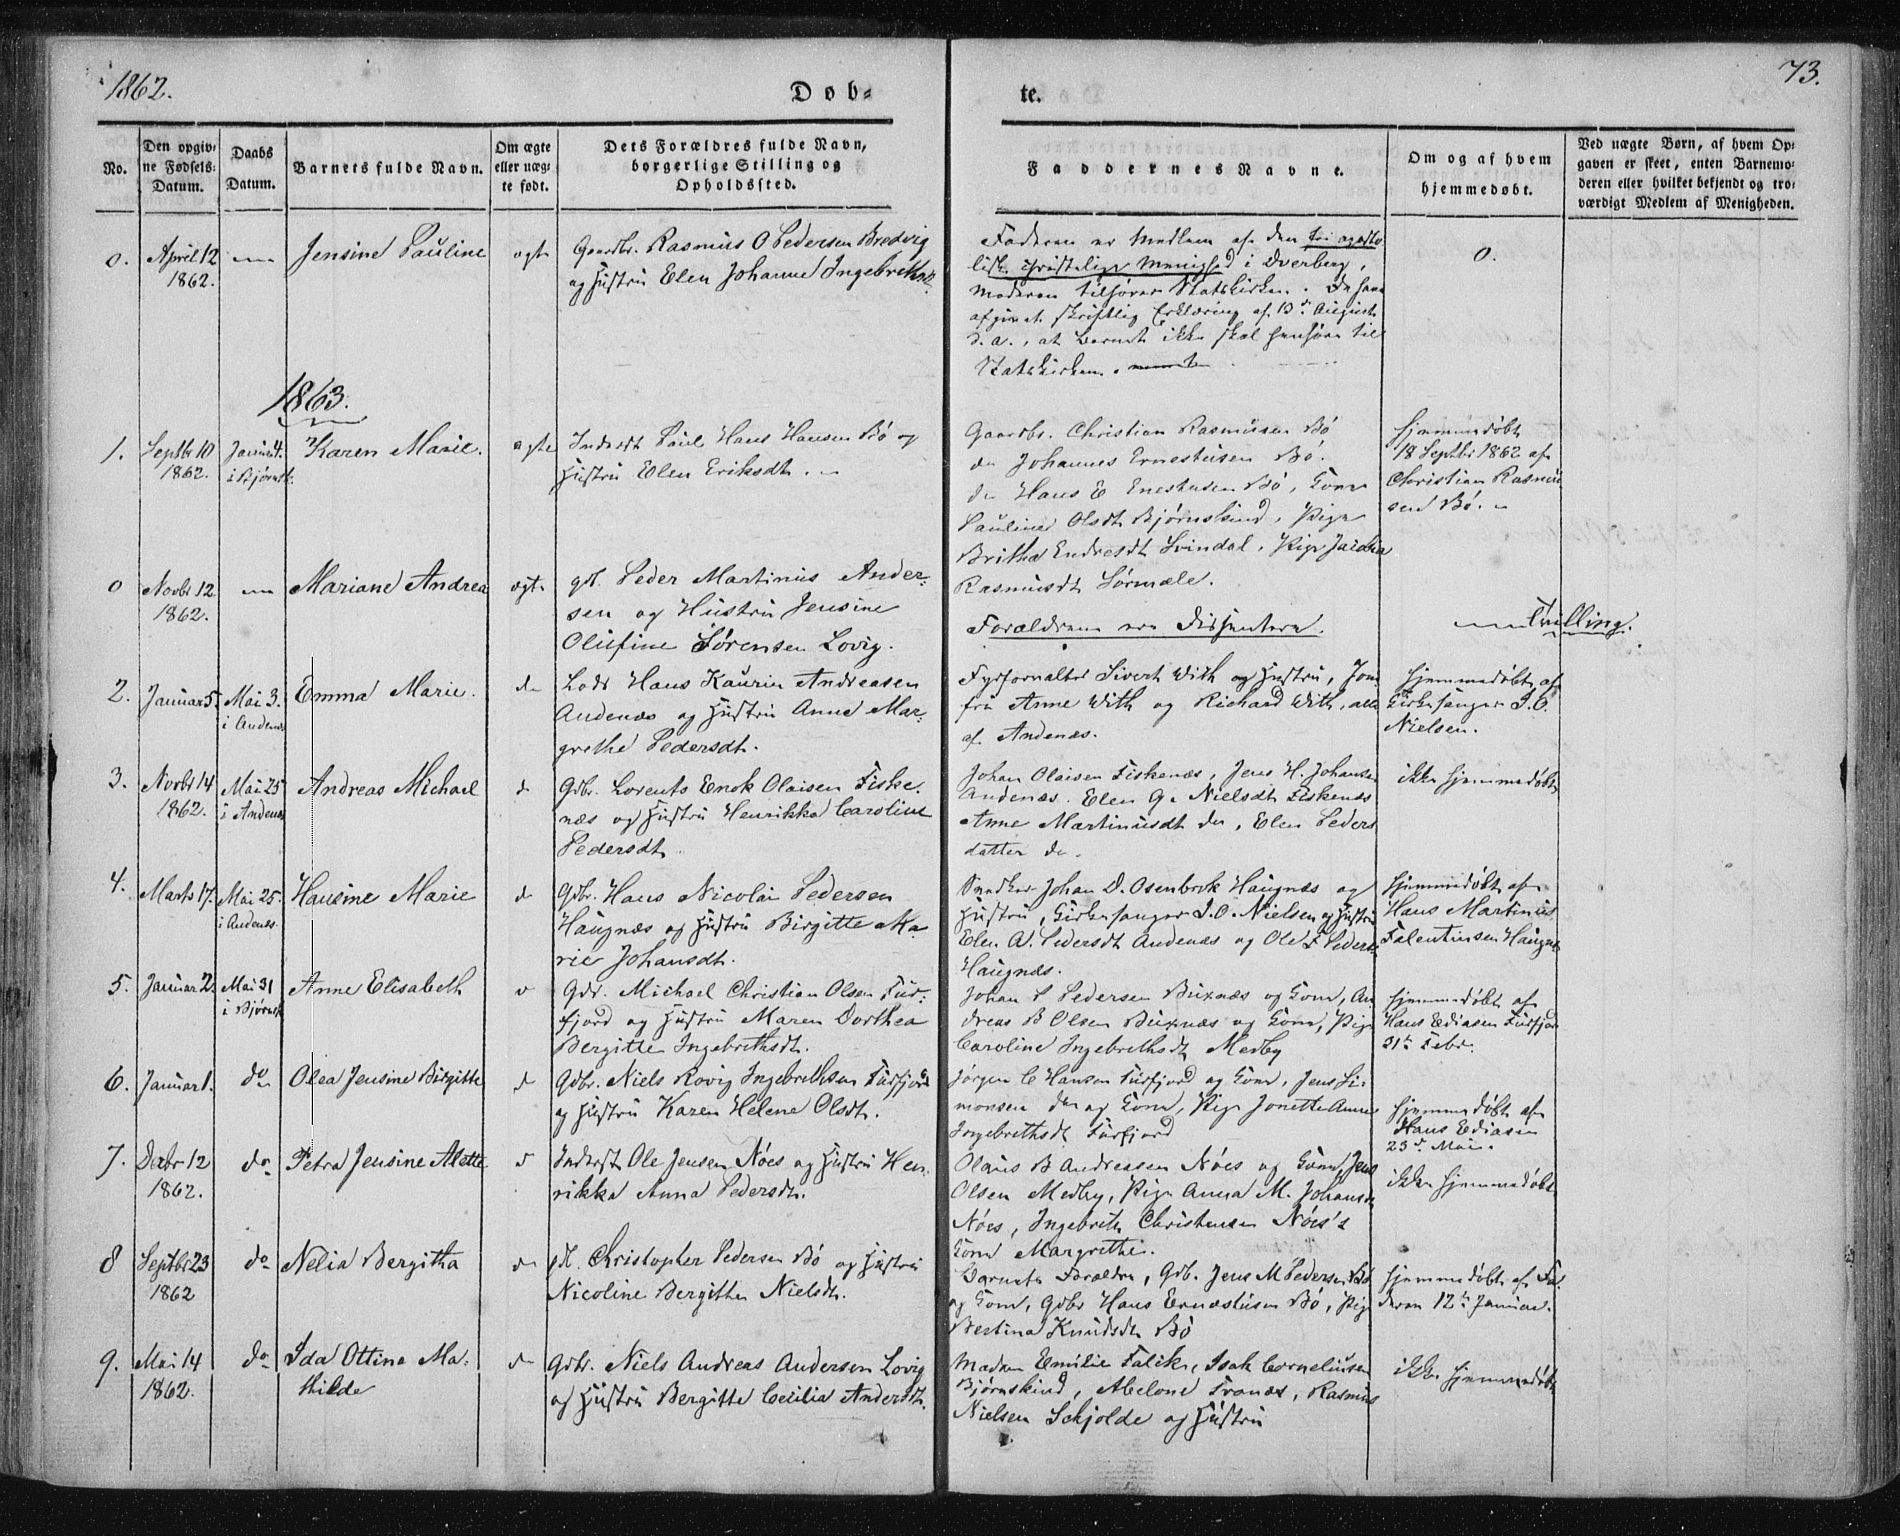 1862.
Døb-
te.
73.
No.
Den opgiv-
ne Fødsels-
Datum.
Daabs
Datum.
Barnets fulde Navn.
Om ægte
eller uæg-
te født.
Dets Forældres fulde Navn,
borgerlige Stilling og
Opholdssted.
Faddernes Navne.
Om og af hvem
hjemmedøbt.
Ved uægte Børn, af hvem Op-
gaven er skeet, enten Barnemo-
deren eller hvilket bekjendt og tro-
værdigt Medlem af Menigheden.
0.
April 12
1862.
Jensine Pauline
ægte
Gaardbr. Rasmus O Pedersen Bredvig
og Hustru Elen Johanne Ingebrethsdt.
Faderen er Medlem af den fri aposto-
lisk christelige Menighed i Dverberg,
Moderen tilhører Statskirken. De have
afgivet skriftlig Erklæring af 13de August
d. a., at Barnet ikke skal henhøre til
Statskirken.
0.
1863.
1.
Septbr 10
1862.
Januar 4.
i Bjørnsk.
Karen Marie.
ægte
Inderst Paul Hans Hansen Bø og
Hustru Elen Eriksdt.
Gaardbr. Christian Rasmusen Bø
do Johannes Ernestusen Bø.
do Hans E Enestusen Bø, Kone
Pauline Olsdt Bjørnskind, Pige
Britha Endresdt Svindal, Pige Jacobia
Rasmusdt Sørmæle.
Hjemmedøbt
18 Septbr 1862 af
Christian Rasmu-
sen Bø.
0
Novbr 12
1862.
Mariane Andrea
ægte
gl. Peder Martinus Ander-
sen og Hustru Jensine
Olufine Sørensen Lovig.
Forældrene ere Dissentere.
Tvilling.
2.
Januar 5.
Mai 3.
i Andenæs
Emma Marie.
do
Lods Hans Kaurin Andreasen
Andenæs og Hustru Anne Mar-
grethe Pedersdt.
Fyrforvalter Sivert With og Hustru, Jom-
fru Anne With og Richard With, alle
af Andenæs.
Hjemmedøbt af
Kirkesanger I. O.
Nielsen.
3.
Novbr 14
1862.
Mai 25
i Andenæs
Andreas Michael
d
Gdbr. Lorents Enok Olaisen Fiske-
næs og Hustru Henrikka Caroline
Pedersdt
Johan Olaisen Fiskenæs, Jens H. Johansen
Andenæs. Elen G. Nielsdt Fiskenæs
Anne Martinusdt do, Elen Peders
datter do.
ikke hjemmedøbt
4.
Marts 17.
Mai 25.
i Andenæs.
Hansine Marie
d
Gdbr. Hans Nicolai Pedersen
Haugnæs og Hustru Birgitte Ma-
rie Johansdt.
Snedker Johan D. Osenbrok Haugnæs og
Hustru, Kirkesanger I. O. Nielsen og Hustru
Elen A. Pedersdt Andenæs og Ole F Peders
Haugnæs.
Hjemmedøbt af
Hans Martinus
Falentinsen Haugnæs
5.
Januar 2.
Mai 31
i Bjørnsk
Anne Elisabeth
Gdr. Michael Christian Olsen Fur-
fjord og Hustru Maren Dorthea
Bergitte Ingebrethsdt.
Johan P Pedersen Buxnæs og Kone, An
dreas B Olsen Buxnæs og Kone, Pige
Caroline Ingebrethsdt Medby
Hjemmedøbt af
Hans Ediasen Furfjord
21de Febr.
6.
Januar 1.
do
Olea Jensine Birgitte
d
Gdbr. Niels Rovig Ingebrethsen Furfjord
og Hustru Karen Helene Olsdt.
Jørgen C Hansen Furfjord og Kone, Jens Si-
monsen do og Kone, Pige Jonette Anne
Ingebrethsdt Furfjord
Hjemmedøbt af
Hans Ediasen
23de Mai.
7.
Decbr 12
1862.
do
Petra Jensine Alette
d
Inderst Ole Jensen Nøes og Hustru Hen-
rikka Anna Pedersdt.
Olaus B Andreassen Nøes og Kone, Jens
Olsen Medby, Pige Anna M. Johansdt
Nøes, Ingebrith Christensen Nøes's
Kone Margrethe.
ikke hjemmedøbt
8
Septbr 23
1862
do
Nelia Bergitha
do
gl. Christopher Pedersen Bø og Hustru
Nicoline Bergithe Nielsdt.
Barnets Forældre, Gdb. Jens M Pedersen Bø
og Kone, Gdbr Hans Ernæstusen Bø, Pige
Bertina Knudsdt Bø
Hjemmedøbt af Fa-
deren 12te Januar.
9.
Mai 14
1862.
do
Ida Ottine Ma-
thilde
do
Gdbr. Niels Andreas Andersen Lovig
og Hustru Bergitte Cecilia Andersdt.
Madam Emilie Falck, Isak Corneliusen
Bjørnskind, Abelone Tranæs, Rasmus
Nielsen Schjolde og Hustru
ikke hjemmedøbt